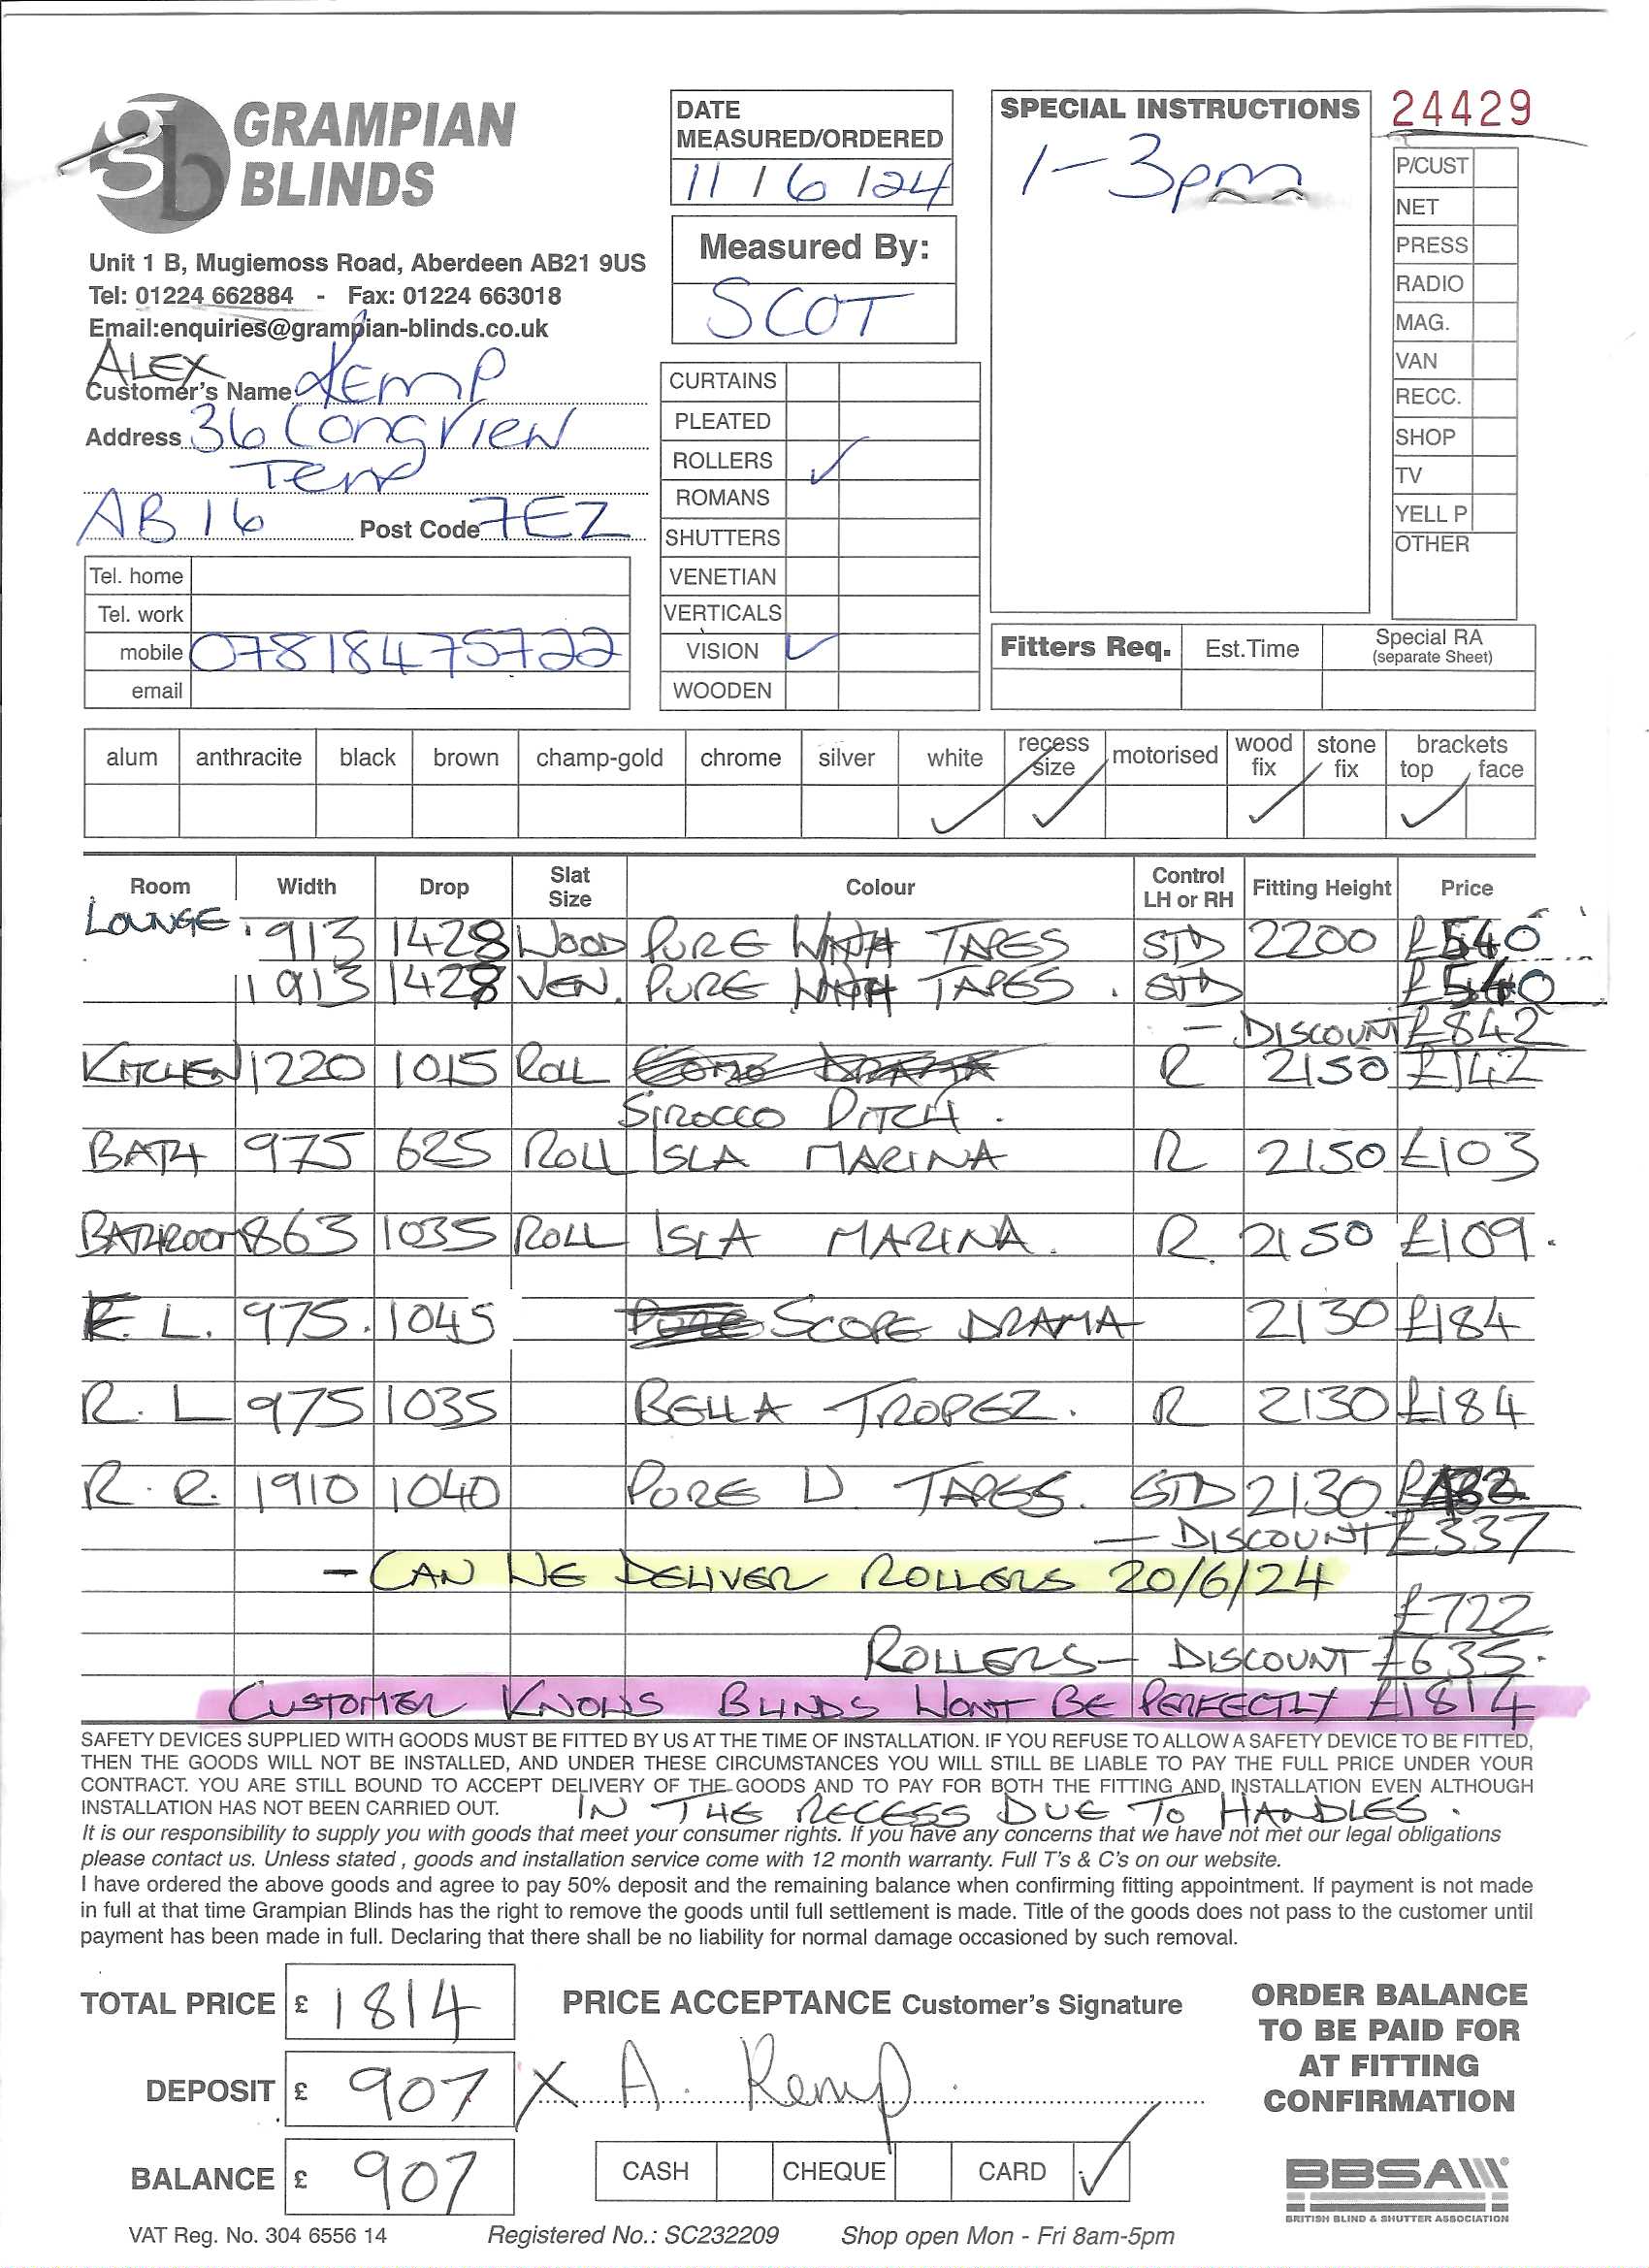 GRAMPIAN
BLINDS
Unit 1 B, Mugiemoss Road, Aberdeen AB21 9US
Tel: 01224 662884 - Fax: 01224 663018
Email:enquiries@grampian-blinds.co.uk
ALEX
Customer's Name KEMP
Address 36 LONGVIEW
TERR
AB16 Post Code 7EZ
Tel. home
Tel. work
mobile 07818475722
email
DATE
MEASURED/ORDERED
11/6/24
Measured By:
SCOT
CURTAINS
PLEATED
ROLLERS ✓
ROMANS
SHUTTERS
VENETIAN
VERTICALS
VISION ✓
WOODEN
SPECIAL INSTRUCTIONS
1-3pm
24429
P/CUST
NET
PRESS
RADIO
MAG.
VAN
RECC.
SHOP
TV
YELL P
OTHER
Fitters Req. Est.Time Special RA
(separate Sheet)
alum anthracite black brown champ-gold chrome silver white recess size motorised wood fix stone fix brackets top face
✓ ✓ ✓ ✓
Room Width Drop Slat Size Colour Control LH or RH Fitting Height Price
LOUNGE 1913 1428 WOOD PURE WITH TAPES STD 2200 £540
1913 1428 VEN. PURE WITH TAPES. STD £540
- DISCOUNT £842
KITCHEN 1220 1015 ROLL R 2150 £142
SIROCCO DITCH.
BATH 975 625 ROLL ISLA MARINA R 2150 £103
BATHROOM 863 1035 ROLL ISLA MARINA. R. 2150 £109.
L. 975. 1045 SCOPE DRAMA 2130 £184
R. L 975 1035 BELLA TROPEZ. R 2130 £184
R. R. 1910 1040 PURE W. TAPES. STD 2130
- DISCOUNT £337
- CAN WE DELIVER ROLLERS 20/6/24
£722
ROLLERS - DISCOUNT £635.
CUSTOMER KNOWS BLINDS WONT BE PERFECTLY £1814
SAFETY DEVICES SUPPLIED WITH GOODS MUST BE FITTED BY US AT THE TIME OF INSTALLATION. IF YOU REFUSE TO ALLOW A SAFETY DEVICE TO BE FITTED,
THEN THE GOODS WILL NOT BE INSTALLED, AND UNDER THESE CIRCUMSTANCES YOU WILL STILL BE LIABLE TO PAY THE FULL PRICE UNDER YOUR
CONTRACT. YOU ARE STILL BOUND TO ACCEPT DELIVERY OF THE GOODS AND TO PAY FOR BOTH THE FITTING AND INSTALLATION EVEN ALTHOUGH
INSTALLATION HAS NOT BEEN CARRIED OUT. IN THE RECESS DUE TO HANDLES.
It is our responsibility to supply you with goods that meet your consumer rights. If you have any concerns that we have not met our legal obligations
please contact us. Unless stated , goods and installation service come with 12 month warranty. Full T's & C's on our website.
I have ordered the above goods and agree to pay 50% deposit and the remaining balance when confirming fitting appointment. If payment is not made
in full at that time Grampian Blinds has the right to remove the goods until full settlement is made. Title of the goods does not pass to the customer until
payment has been made in full. Declaring that there shall be no liability for normal damage occasioned by such removal.
TOTAL PRICE £ 1814
PRICE ACCEPTANCE Customer's Signature
DEPOSIT £ 907 X A. Kemp.
BALANCE £ 907
CASH CHEQUE CARD ✓
ORDER BALANCE
TO BE PAID FOR
AT FITTING
CONFIRMATION
BBSA
BRITISH BLIND & SHUTTER ASSOCIATION
VAT Reg. No. 304 6556 14 Registered No.: SC232209 Shop open Mon - Fri 8am-5pm